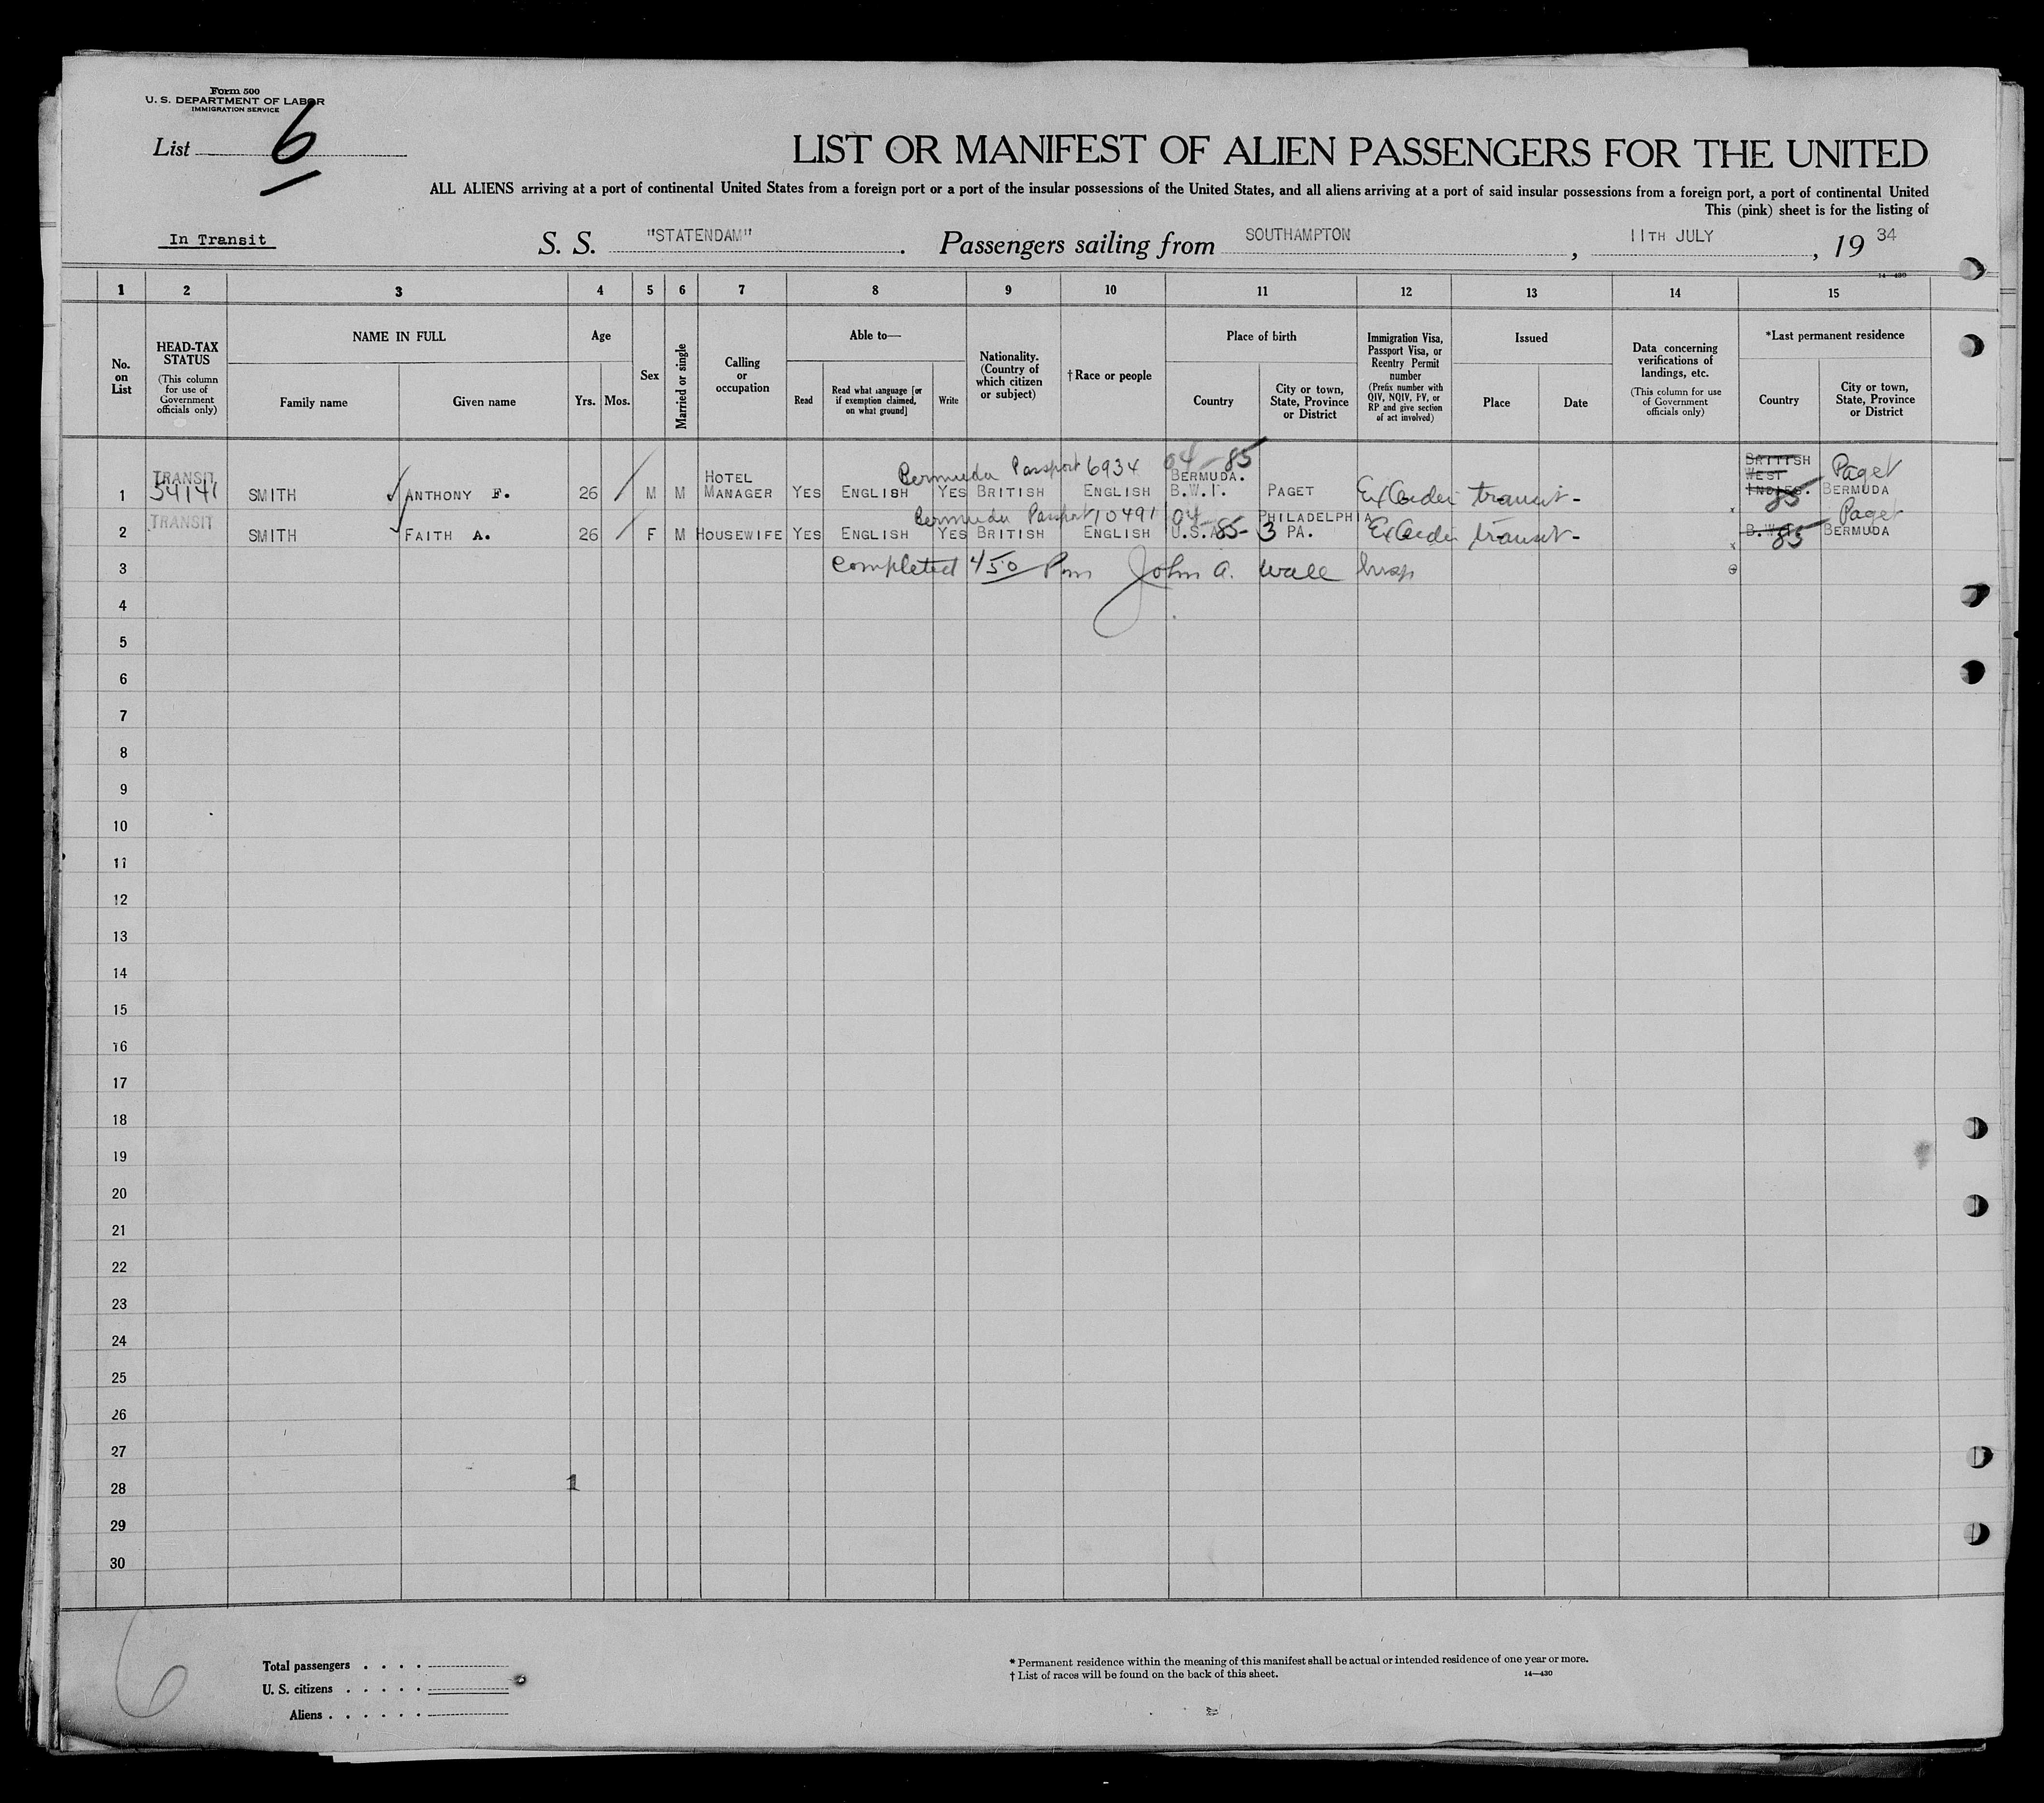 Form 500
U. S. DEPARTMENT OF LABOR
IMMIGRATION SERVICE
List 6
LIST OR MANIFEST OF ALIEN PASSENGERS FOR THE UNITED
ALL ALIENS arriving at a port of continental United States from a foreign port or a port of the insular possessions of the United States, and all aliens arriving at a port of said insular possessions from a foreign port, a port of continental United
This (pink) sheet is for the listing of
In Transit
S. S. "STATENDAM". Passengers sailing from SOUTHAMPTON, 11TH JULY, 19 34
14—430
1 2 3 4 5 6 7 8 9 10 11 12 13 14 15
No. on List
HEAD-TAX STATUS
(This column for use of Government officials only)
NAME IN FULL
Family name
Given name
Age
Yrs.
Mos.
Sex
Married or single
Calling or occupation
Able to—
Read
Read what language [or if exemption claimed, on what ground]
Write
Nationality. (Country of which citizen or subject)
†Race or people
Place of birth
Country
City or town, State, Province or District
Immigration Visa, Passport Visa, or Reentry Permit number
(Prefix number with QIV, NQIV, PV, or RP and give section of act involved)
Issued
Place
Date
Data concerning verifications of landings, etc.
(This column for use of Government officials only)
*Last permanent residence
Country
City or town, State, Province or District
Bermuda Passport 6934 04-85
1 TRANSIT 54141 SMITH ANTHONY F. 26 M M HOTEL MANAGER YES ENGLISH YES BRITISH ENGLISH BERMUDA. B.W.I. PAGET transit- BRITISH WEST INDIES. 85 Paget BERMUDA
Bermuda Passport 10491 04
2 TRANSIT SMITH FAITH A. 26 F M HOUSEWIFE YES ENGLISH YES BRITISH ENGLISH U.S.A. 85-3 PHILADELPHIA PA. transit- B.W.I. 85 Paget BERMUDA
3 completed 450 Pm John A. Wall Insp
4
5
6
7
8
9
10
11
12
13
14
15
16
17
18
19
20
21
22
23
24
25
26
27
28 1
29
30
6
Total passengers . . . .
U. S. citizens . . . . .
Aliens . . . . . .
* Permanent residence within the meaning of this manifest shall be actual or intended residence of one year or more.
† List of races will be found on the back of this sheet. 14—430